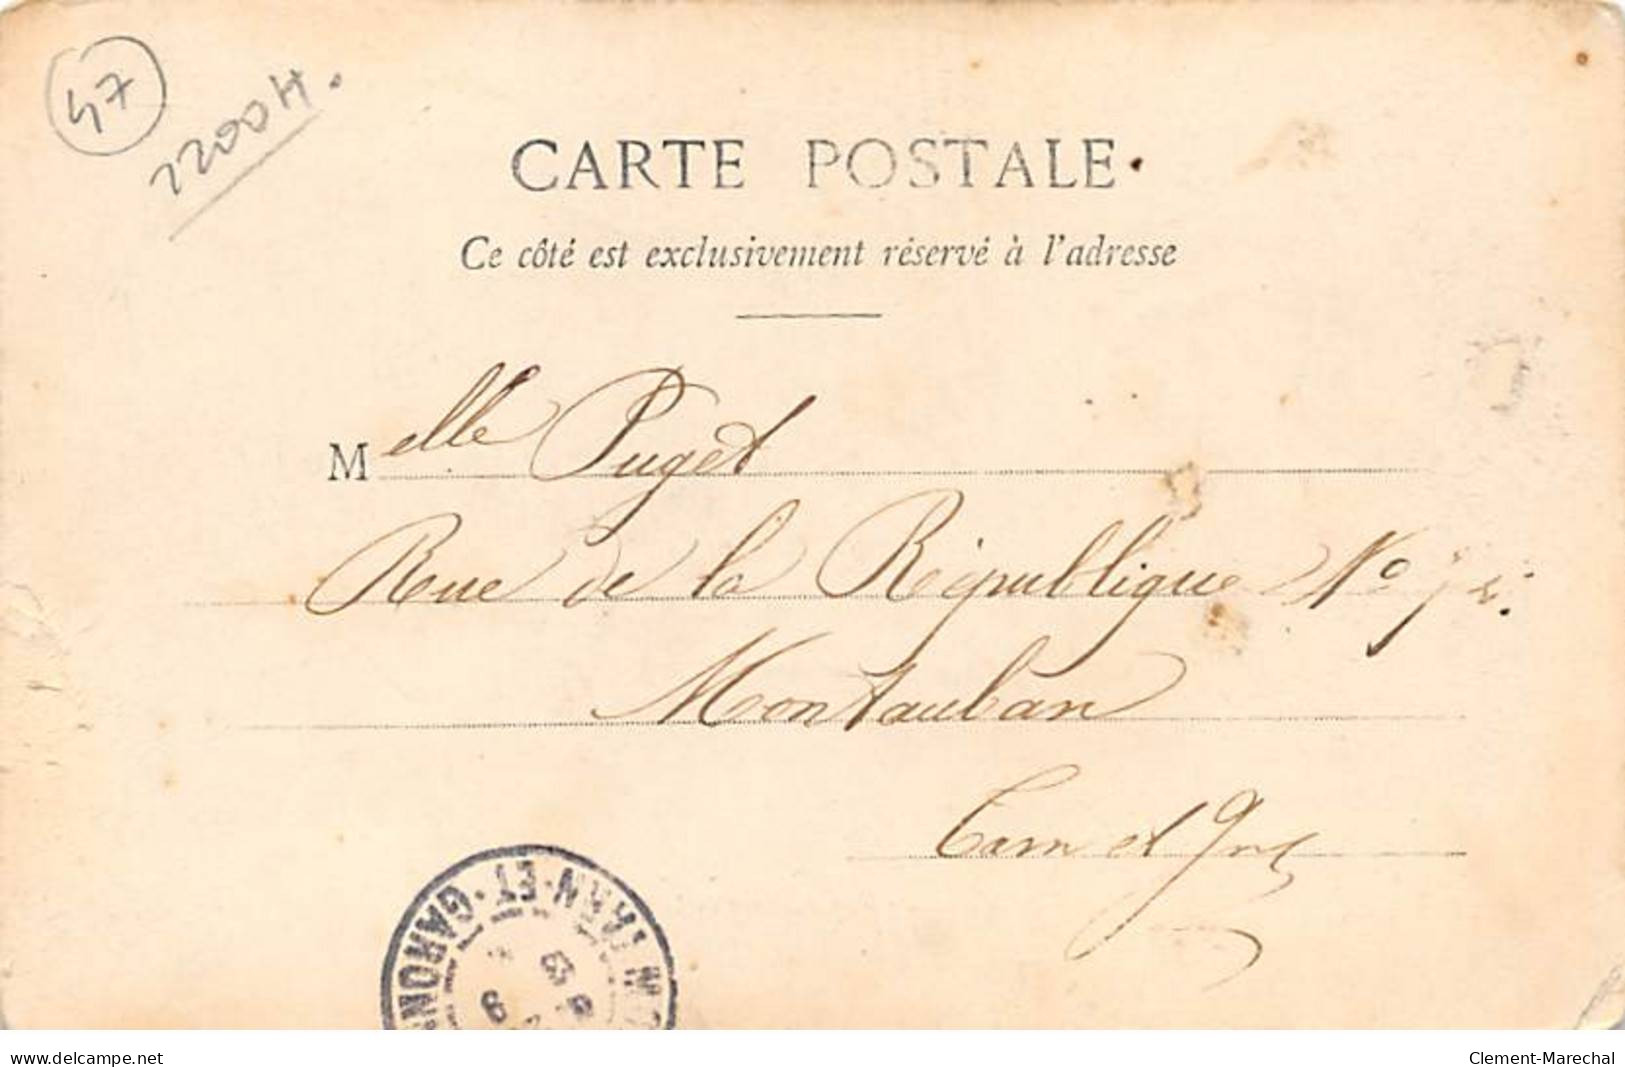 47
2200H.
CARTE POSTALE
Ce côté est exclusivement réservé à l'adresse
Melle Puget
Rue de la République No
Montauban
Tarn et Gne
TARN-ET-GARONNE
www.delcampe.net
Clement-Marechal